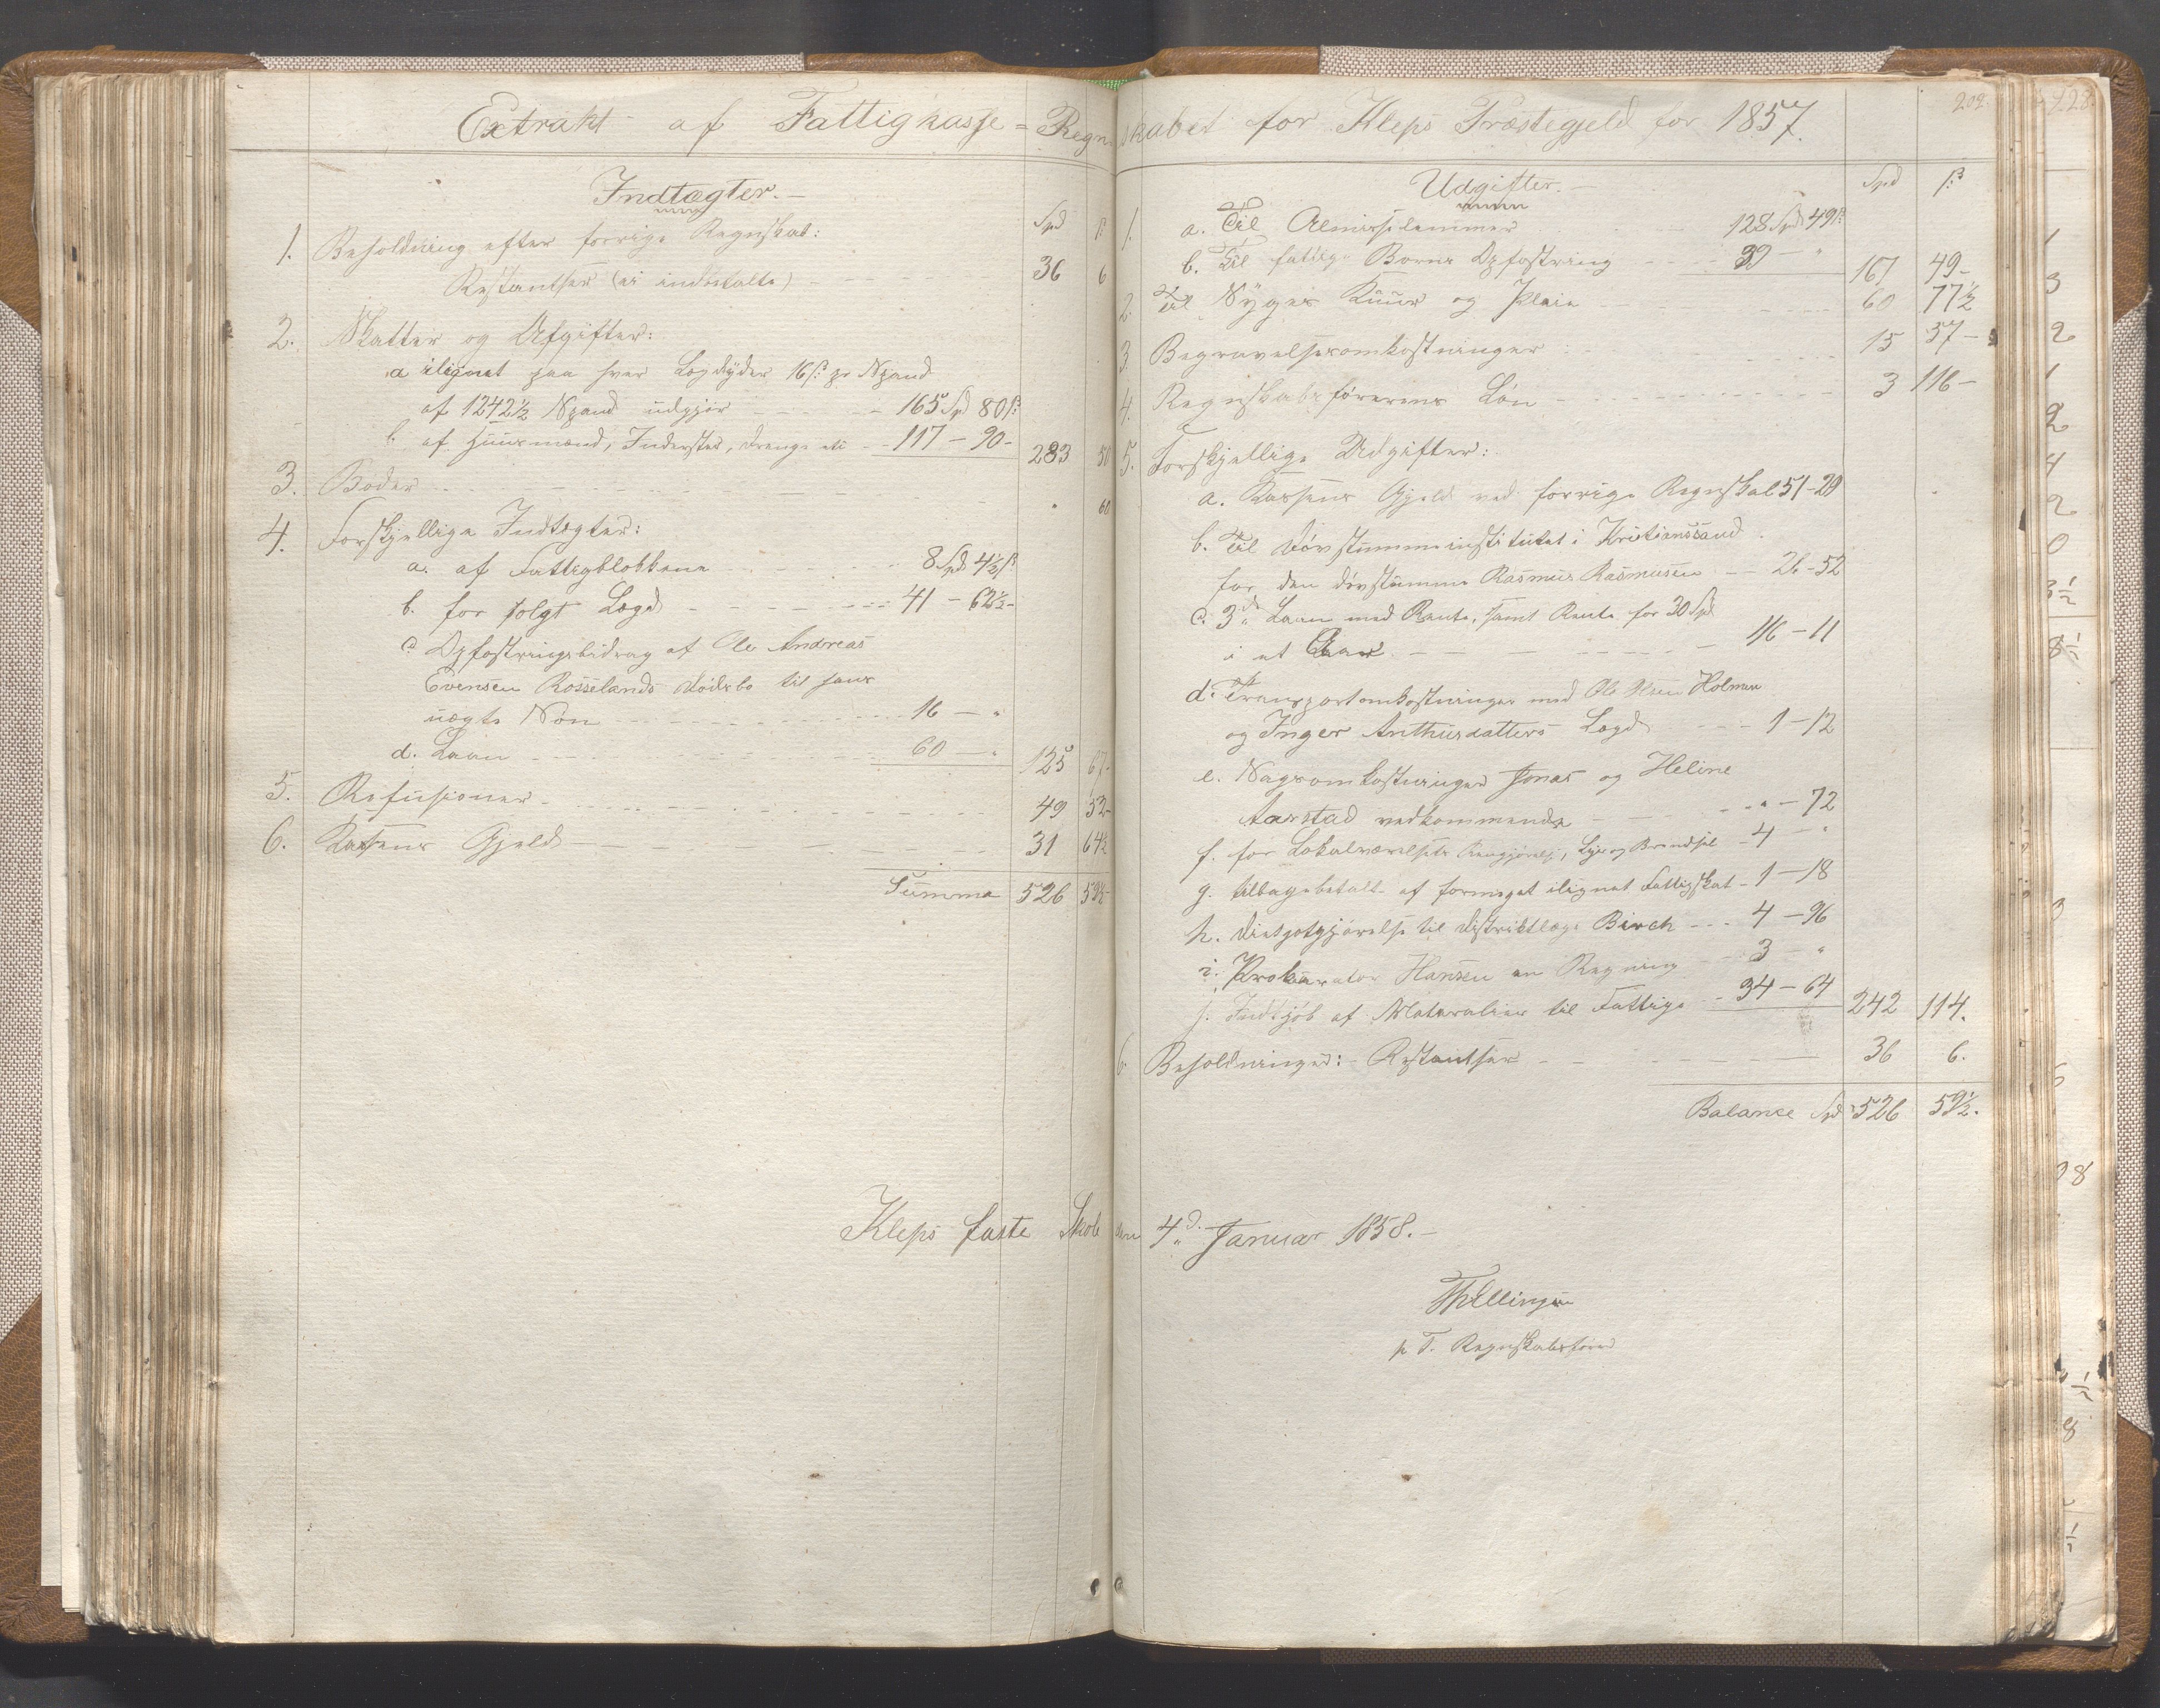 Extrakt af Fattigkasse=Regnskabet for Kleps Præstegjeld for 1857.
202.
Indtægter.-
Spd ß
1. Beholdning efter forrige Regnskab:
Restantser (ei indbetalte) 36 6
2. Skatter og Afgifter:
a ilignet paa hver Lægdyder 16ß pr Spand
af 1242½ Spand udgjør 165 Spd 80ß
b. af Huusmænd, Inderster, Drenge etc 117 - 90- 283 50
3. Bøder " 60
4. Forskjellige Indtægter:
a. af Fattigblokkene 8 Spd 4½ß
b. for solgt Lægd 41 - 62½-
c. Opfostringsbidrag af Ole Andreas
Evensen Rosselands Dødsbo til hans
uægte Søn 16 - "
d. Laan 60 - " 125 67-
5. Refusioner 49 52-
6. Kassens Gjeld 31 64½
Summa 526 59½-
Kleps faste Skole den 4d. Januar 1858.-
Udgifter.-
Spd ß
1. a. Til Almisselemmer 128 Spd 49ß
b. Til fattige Børns Opfostring 39 - " 167 49-
2. Til Syges Kuur og Pleie 60 77½
3. Begravelsesomkostninger 15 37-
4. Regnskabsførerens Løn 3 116-
5. Forskjellige Udgifter:
a. Kassens Gjeld ved forrige Regnskab 51-29
b. Til Døvstummeinstitutet i Kristianssand
for den døvstumme Rasmus Rasmusen 26-52
c. 3de Laan med Rente, samt Rente for 30 Spd
i et Aar 116-11
d. Transportomkostninger med Ole Olsen Holmen
og Inger Anthusdatters Lægd 1-12
e. Sagsomkostninger Jonas og Heline
Aarstad vedkommende " - 72
f. for Lokalværelsets Rengjørelse, Lys og Brændsel 4 - "
g. tilbagebetalt af formeget ilignet Fattigskat 1-18
h. Diætgotgjørelse til Distriktlæge Birch 4-96
i. Prokurator Hansen en Regning 3 - "
j. Indkjøb af Materialier til Fattige 34-64 242 114.
6. Beholdninger: Restantser 36 6.
Balance Spd 526 59½.
p T. Regnskabsfører